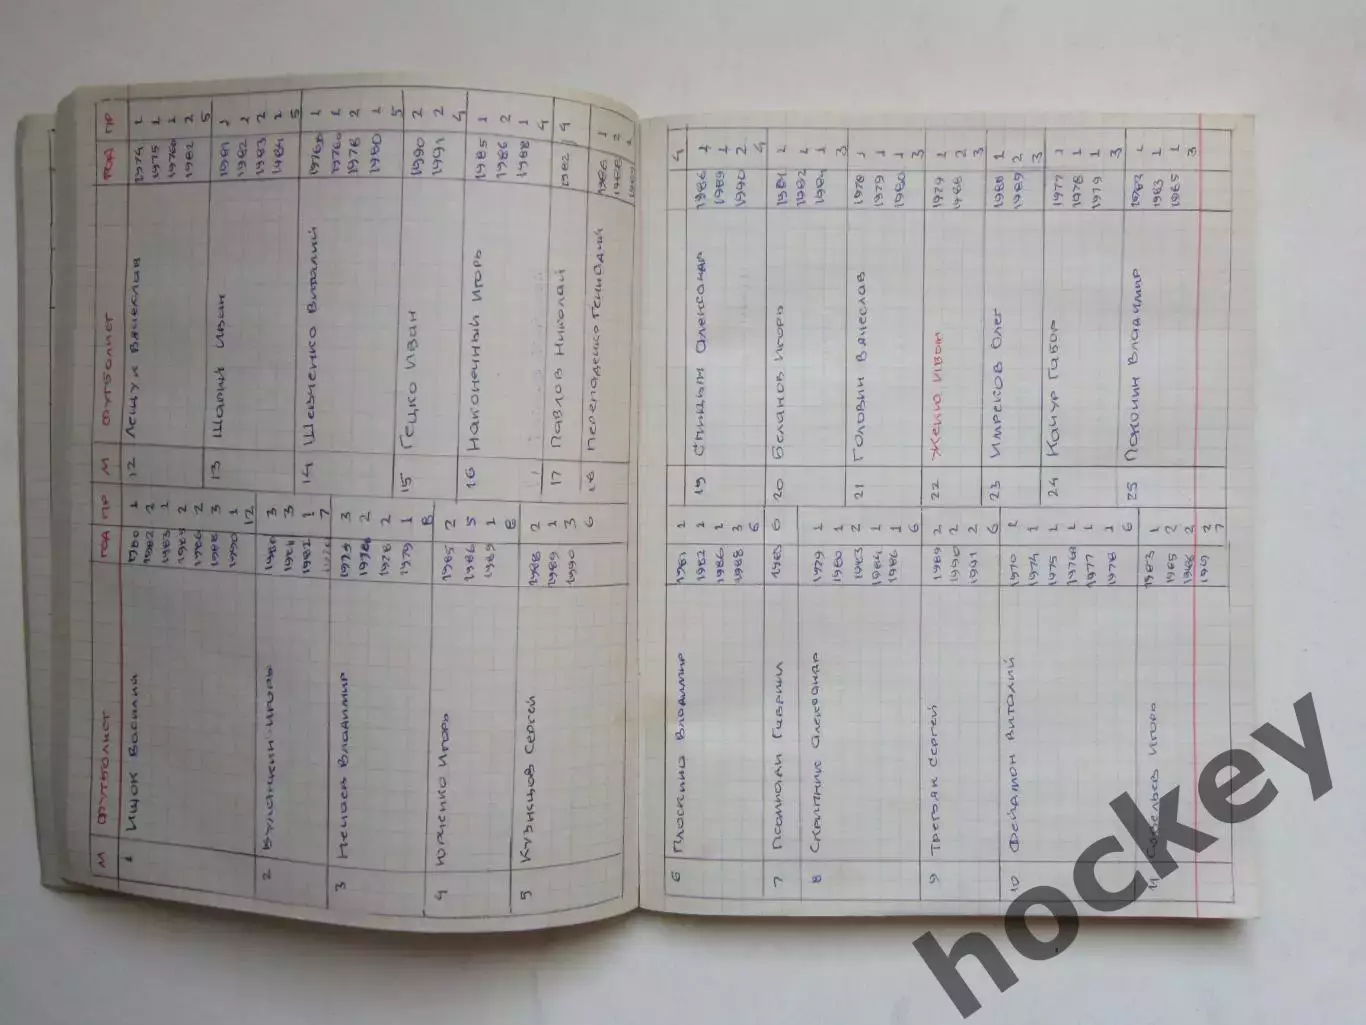 М ФУТБОЛИСТ ГОД ПР
1 Ищак Василий 1980 1
1982 2
1983 1
1984 2
1986 2
1988 3
1990 1
12
2 1980 3
1981 3
1982 1
7
3 Нечаев Владимир 1974 3
1976 2
1978 2
1979 1
8
4 Юрченко Игорь 1985 2
1986 5
1989 1
8
5 Кузнецов Сергей 1988 2
1989 1
1990 3
6
М ФУТБОЛИСТ ГОД ПР
12 Лещук Вячеслав 1974 1
1975 1
1976 1
1982 2
5
13 Шарий Иван 1981 1
1982 2
1983 2
1984 2
5
14 Шевченко Виталий 1976 1
1976 1
1978 2
1980 1
5
15 Гецко Иван 1990 2
1991 2
4
16 Наконечный Игорь 1985 1
1986 2
1988 1
4
17 Павлов Николай 1982 4
18 Перепаденко Геннадий 1986 1
1988 2
6 Плоскина Владимир 1981 1
1982 1
1986 1
1988 3
6
7 1983 6
8 Скрипник Александр 1979 1
1980 1
1983 2
1984 1
1986 1
6
9 Третяк Сергей 1989 2
1990 2
1991 2
6
10 Фейдман Виталий 1970 1
1974 1
1975 1
1976 1
1977 1
1978 1
6
11 Савельев Игорь 1983 1
1985 2
1986 2
7
19 Спицын Александр 1986 1
1989 1
1990 2
4
20 Беланов Игорь 1981 1
1982 1
1984 1
3
21 Головин Вячеслав 1978 1
1979 1
1980 1
3
22 1979 1
1988 2
3
23 Имреков Олег 1988 1
1989 2
3
24 Качур Габор 1977 1
1978 1
1979 1
3
25 Владимир 1982 1
1983 1
1985 1
3
hockey